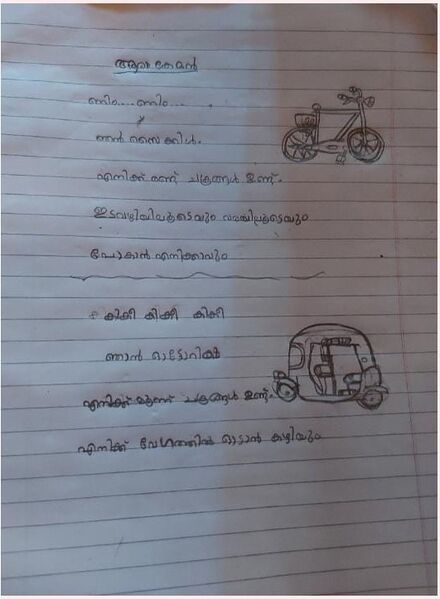 ആരാ കേമൻ
ണിം....ണിം...
ഞൻ സൈക്കിൾ.
എനിക്ക് രണ്ട് ചക്രങ്ങൾ ഉണ്ട്.
ഇടവഴിയിലൂടെയും വരമ്പിലൂടെയും
പോകാൻ എനിക്കാവും
കിക്കീ കിക്കീ കിക്കീ
ഞാൻ ഓട്ടോറിക്ഷ
എനിക്ക് മൂന്ന് ചക്രങ്ങൾ ഉണ്ട്.
എനിക്ക് വേഗത്തിൽ ഓടാൻ കഴിയും